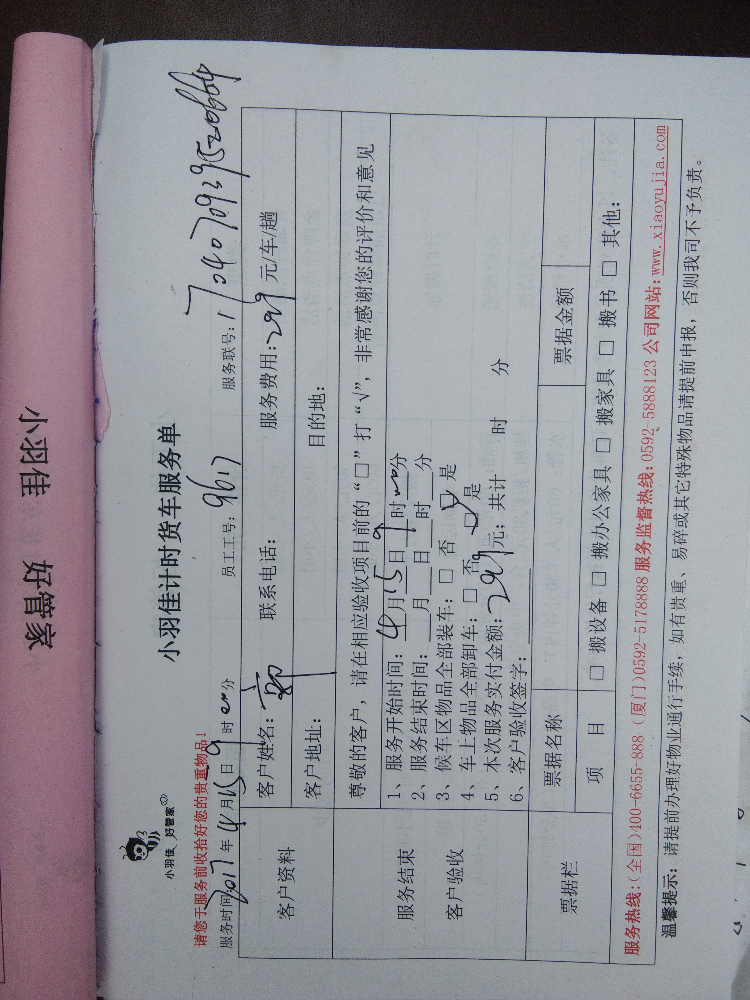 小羽佳 好管家
小羽佳 好管家
小羽佳计时货车服务单
请您于服务前收拾好您的贵重物品！
服务时间：2017年4月15日9时00分 员工工号：9617 服务联号：
客户资料 客户姓名： 联系电话： 服务费用：299元/车/趟
客户地址： 目的地：
服务结束
客户验收
尊敬的客户，请在相应验收项目前的“□”打“√”，非常感谢您的评价和意见
1、服务开始时间：4月15日9时00分
2、服务结束时间：___月___日___时___分
3、候车区物品全部装车：□ 否 □ 是
4、车上物品全部卸车：□ 否 □ 是
5、本次服务实付金额：299元；共计 时 分
6、客户验收签字：
票据栏 票据名称 票据金额
项 目 □ 搬设备 □ 搬办公家具 □ 搬家具 □ 搬书 □ 其他：
服务热线：(全国)400-6655-888 (厦门)0592-5178888 服务监督热线：0592-5888123 公司网站：www.xiaoyujia.com
温馨提示：请提前办理好物业通行手续，如有贵重、易碎或其它特殊物品请提前申报，否则我司不予负责。